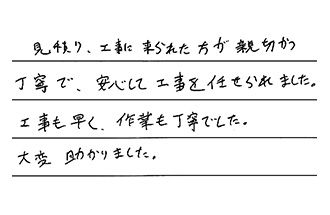 見積り、工事に来られた方が親切かつ
丁寧で、安心して工事を任せられました。
工事も早く、作業も丁寧でした。
大変助かりました。